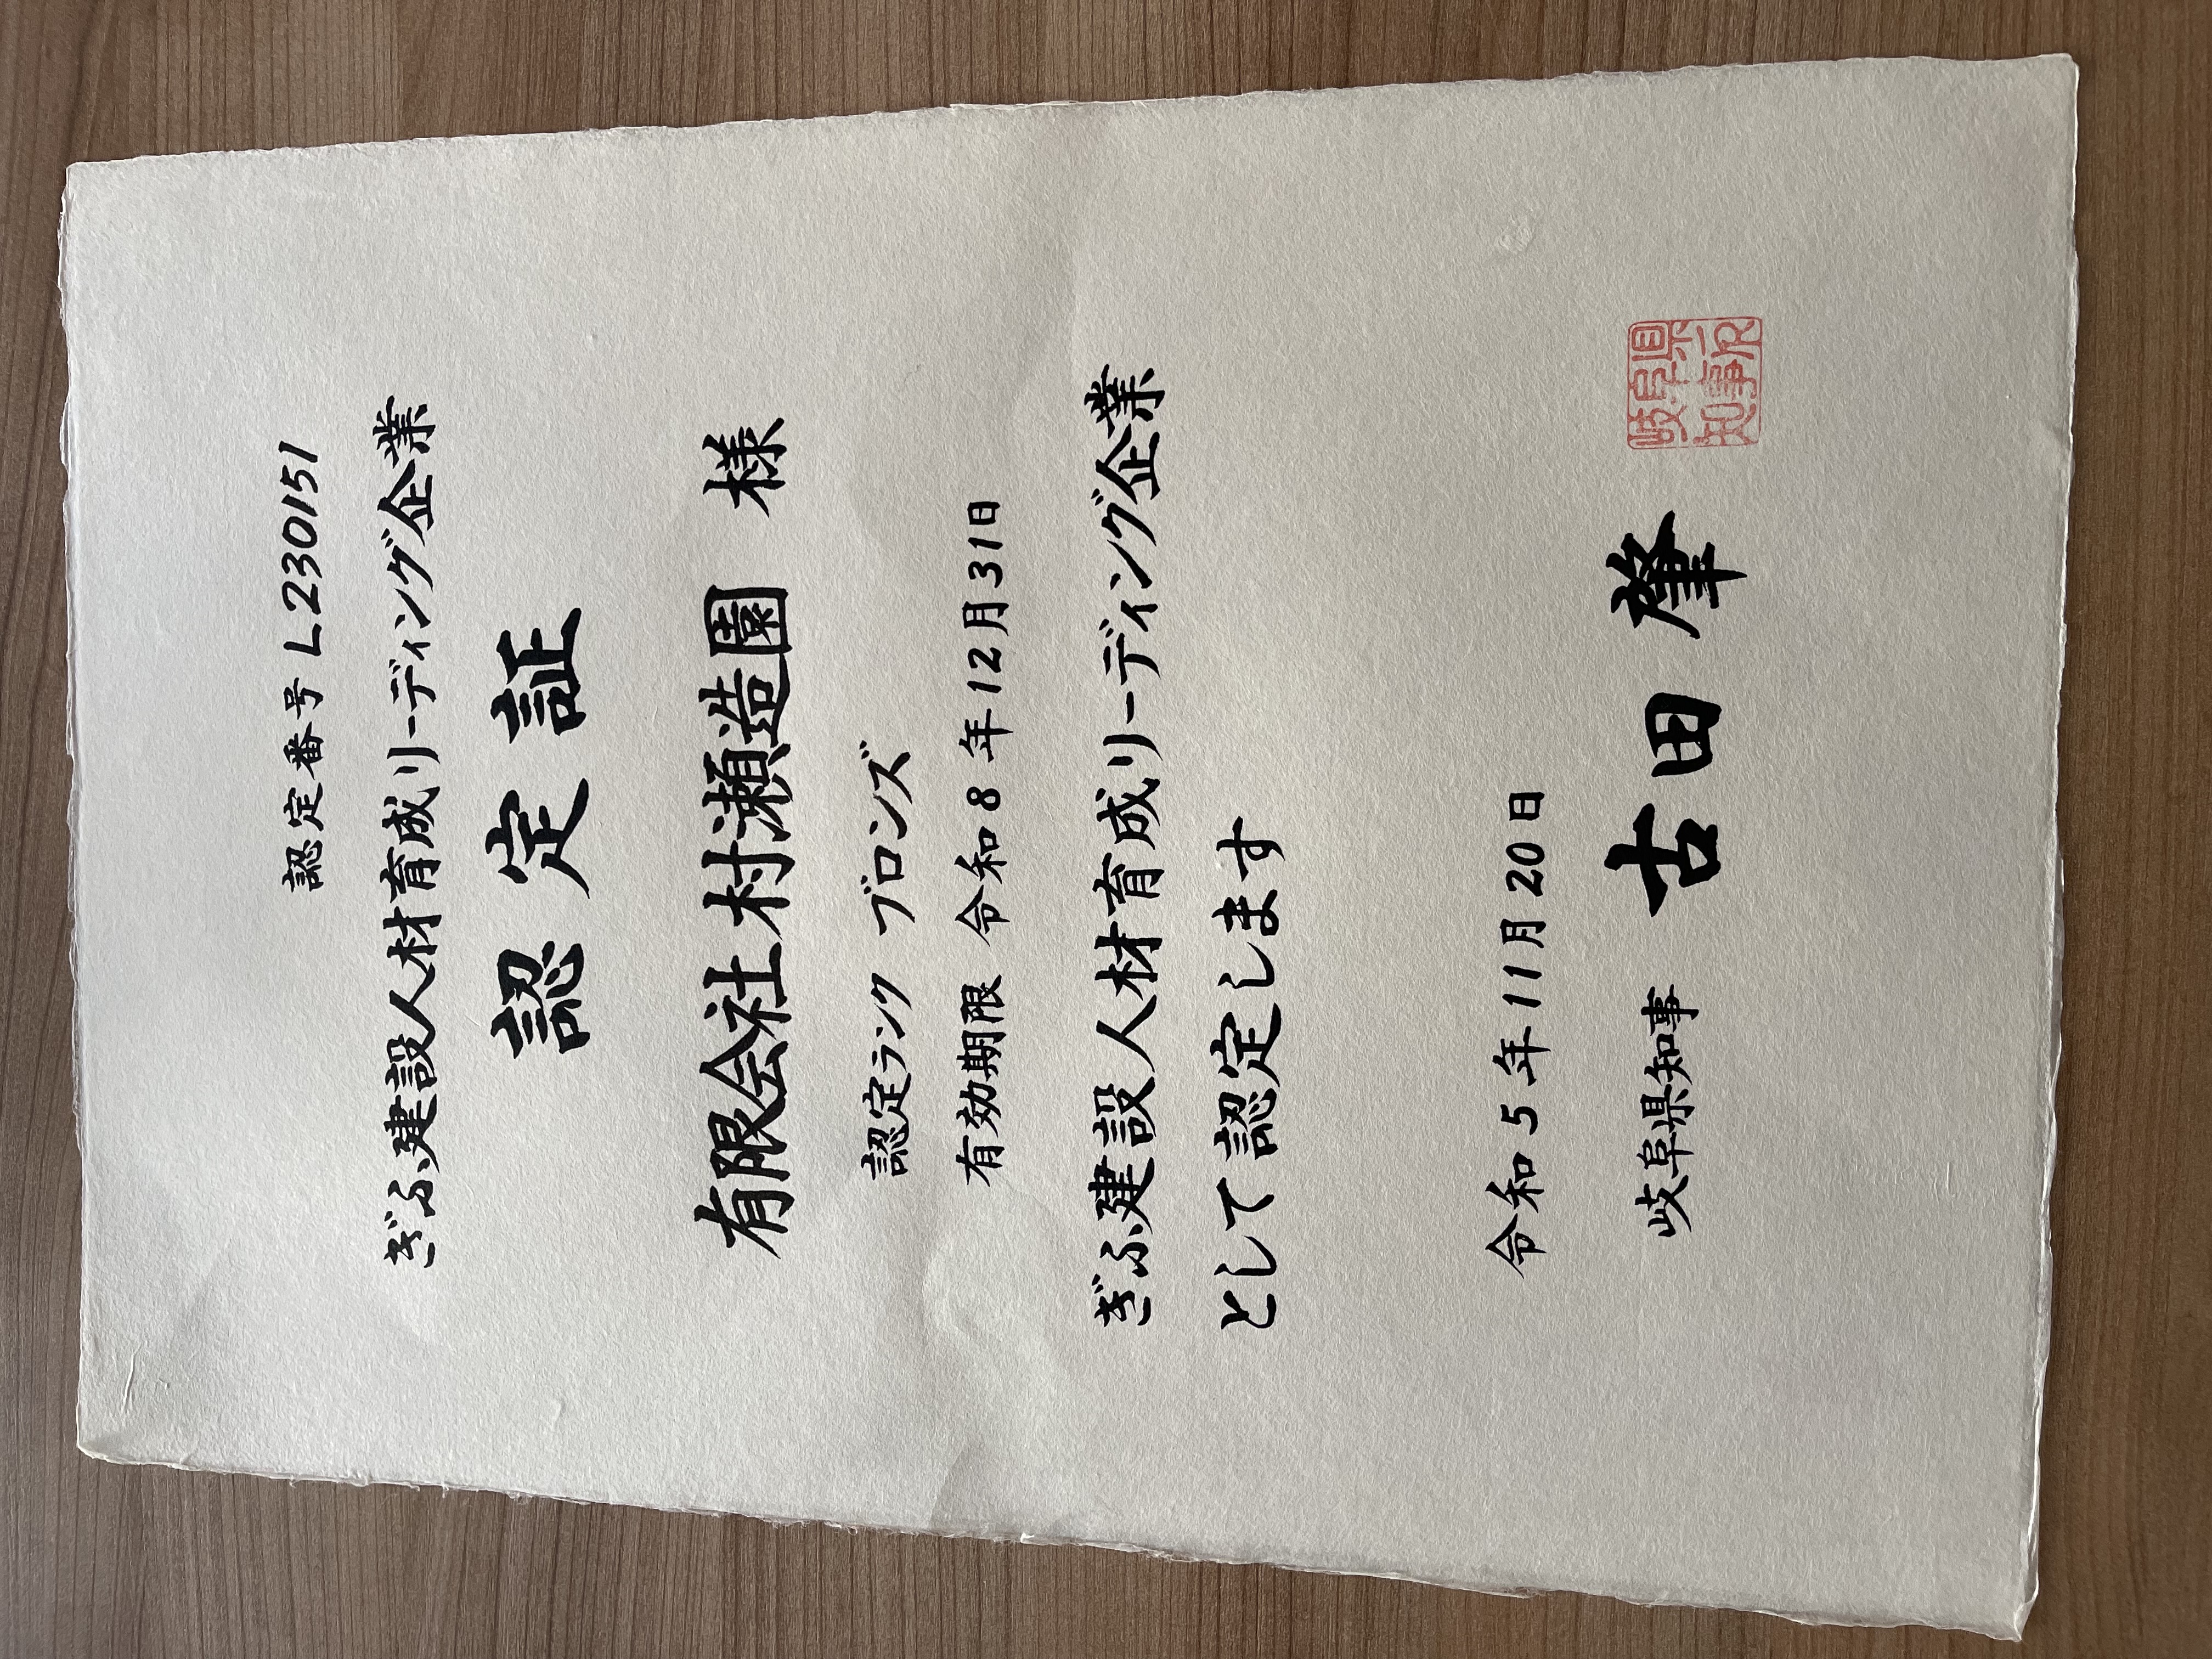 認定番号 L230151
ぎふ建設人材育成リーディング企業
認定証
有限会社村瀬造園 様
認定ランク ブロンズ
有効期限 令和8年12月31日
ぎふ建設人材育成リーディング企業
として認定します
令和5年11月20日
岐阜県知事 古田肇
岐阜県
知事印